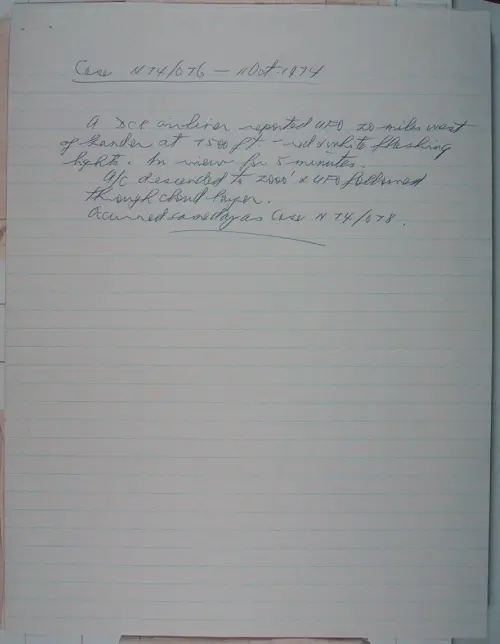 Case N 74/076 — 11 Oct 1974
A DC8 airliner reported UFO 20 miles west
of Gander at 7500 ft - red white flashing
lights. In view for 5 minutes.
A/C descended to 2000' & UFO followed
through cloud layer.
Occurred same day as Case N 74/078.